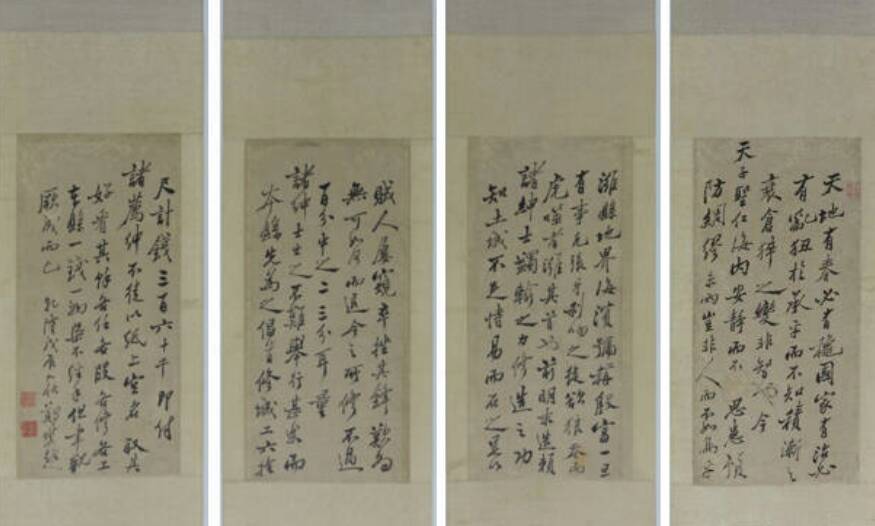 天地有春必有穐國家有治必
有亂狃於承平而不知積漸之
衰倉猝之變非智也 今
天子聖仁海内安靜而不 思患預
防綢繆未雨豈非人而不如鳥乎
濰縣地界海濱號稱殷富一旦
有事凡張牙利吻之徒欲狼吞而
虎噬者濰其首也前明末造賴
諸紳士蠲輸之力修造之功
知土城不足恃易而石之是以
賊人屢窺卒挫其鋒歎為
無可如何而退今之所修不過
百分中之二三分耳量
諸紳士主之不難舉行甚矣而
本縣先為之倡首修城工六拾
尺計錢三百六十千即付
諸薦紳不徒以紙上空名取其
好看其餘各任各段各修各工
本縣一錢一物概不經手但率觀
厥成而已 乾隆戊辰 鄭燮題